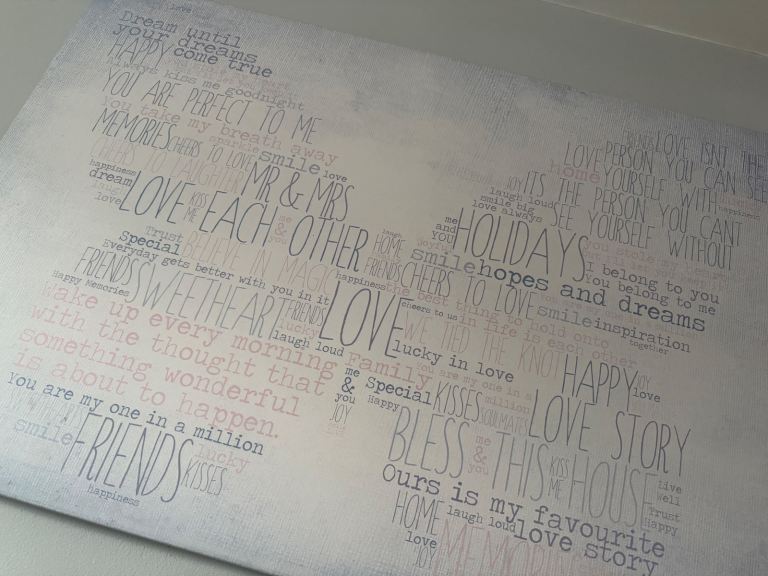 love
Dream until
your dreams
HAPPY come true
Always kiss me goodnight
YOU ARE PERFECT TO ME
You take my breath away
MEMORIES CHEERS TO LOVE sparkle smile love
happiness LAUGHTER MR & MRS
dream
laugh
love LOVE KISS ME EACH OTHER me & you
Trust
Special BELIEVE IN MAGIC
Everyday gets better with you in it
FRIENDS SWEETHEART FRIENDS LOVE
Happy Memories
lucky
laugh loud
Wake up every morning
with the thought that
something wonderful
is about to happen.
You are my one in a million
smile FRIENDS KISSES lucky
happiness
me & you JOY
Family
FRIENDS LOVE ISN'T THE
LOVE PERSON YOU CAN SEE
home YOURSELF WITH
happiness
JOY ITS THE PERSON YOU CANT
laugh loud
smile big
love always SEE YOURSELF WITHOUT
me and you HOLIDAYS you stole
I belong to you
You belong to me
laugh
HOME joyful smile hopes and dreams
happiness FRIENDS CHEERS TO LOVE smile inspiration
the best thing to hold onto
in life is each other
together
cheers to us
WE TIED THE KNOT HAPPY JOY love
lucky in love
You are my one in a million
me Special KISSES SOULMATES LOVE STORY
Happy
BLESS me & you THIS KISS ME HOUSE Live Well
Trust Happy
Ours is my favourite
HOME laugh loud love story
love JOY MEMORIES